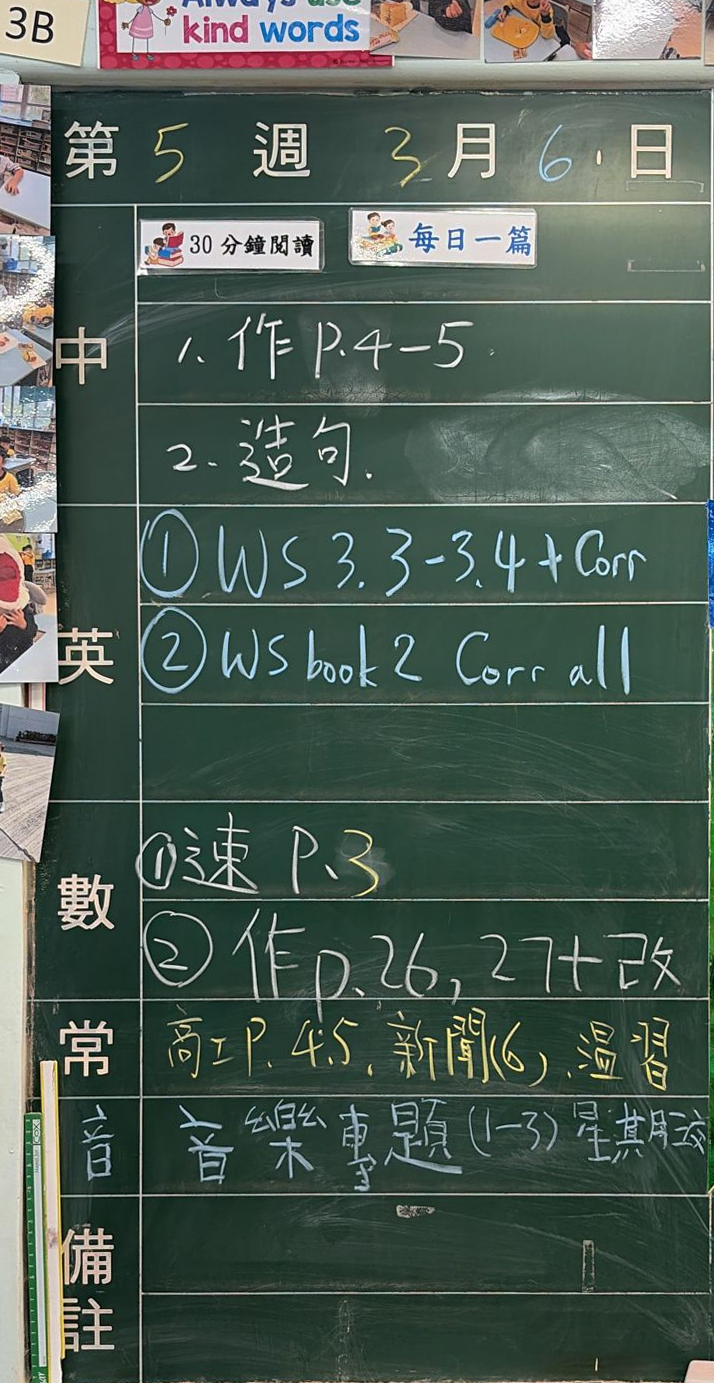 3B
Always use
kind words
第 5 週 3 月 6 日
30 分鐘閱讀 每日一篇
中
1. 作 P.4-5
2. 造句.
英
① WS 3.3-3.4 + Corr
② WS book 2 Corr all
數
① 速 P.3
② 作 p.26, 27+改
常 高工P. 4.5. 新聞(6), 温習
音 音樂專題(1-3) 星期
備
註